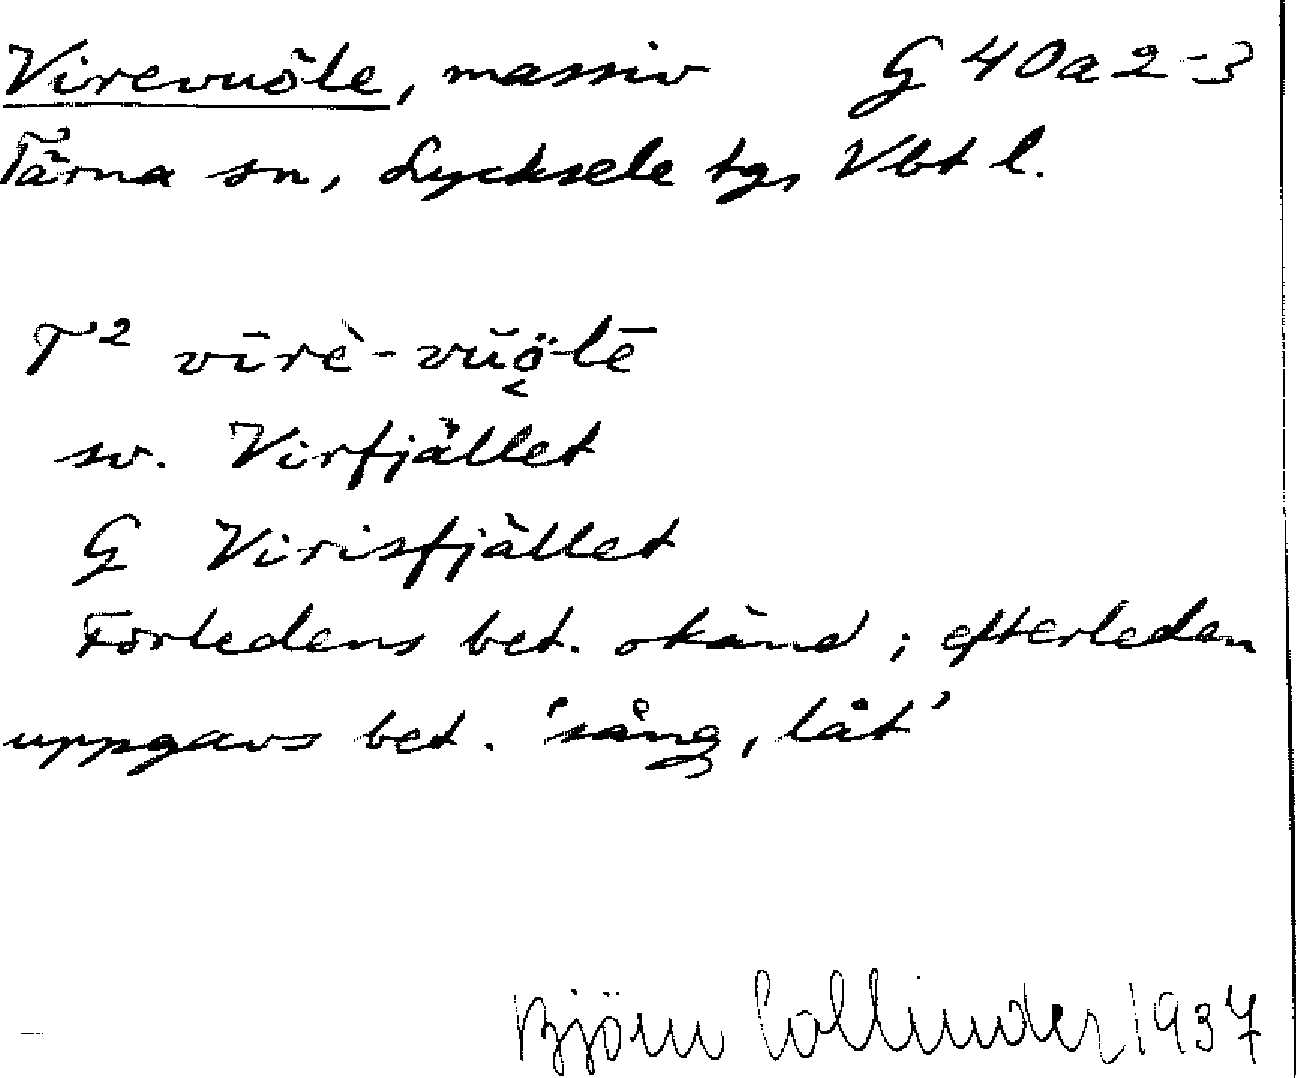 Virevuöle, massiv G 40a2-3
Tärna sn, Lycksele tg, Vbt l.
T² vīrè-vŭö̬lē
sv. Virfjället
G Virisfjället
Förledens bet. okänd; efterleden
uppgavs bet. 'sång, låt'
Björn Collinder 1937